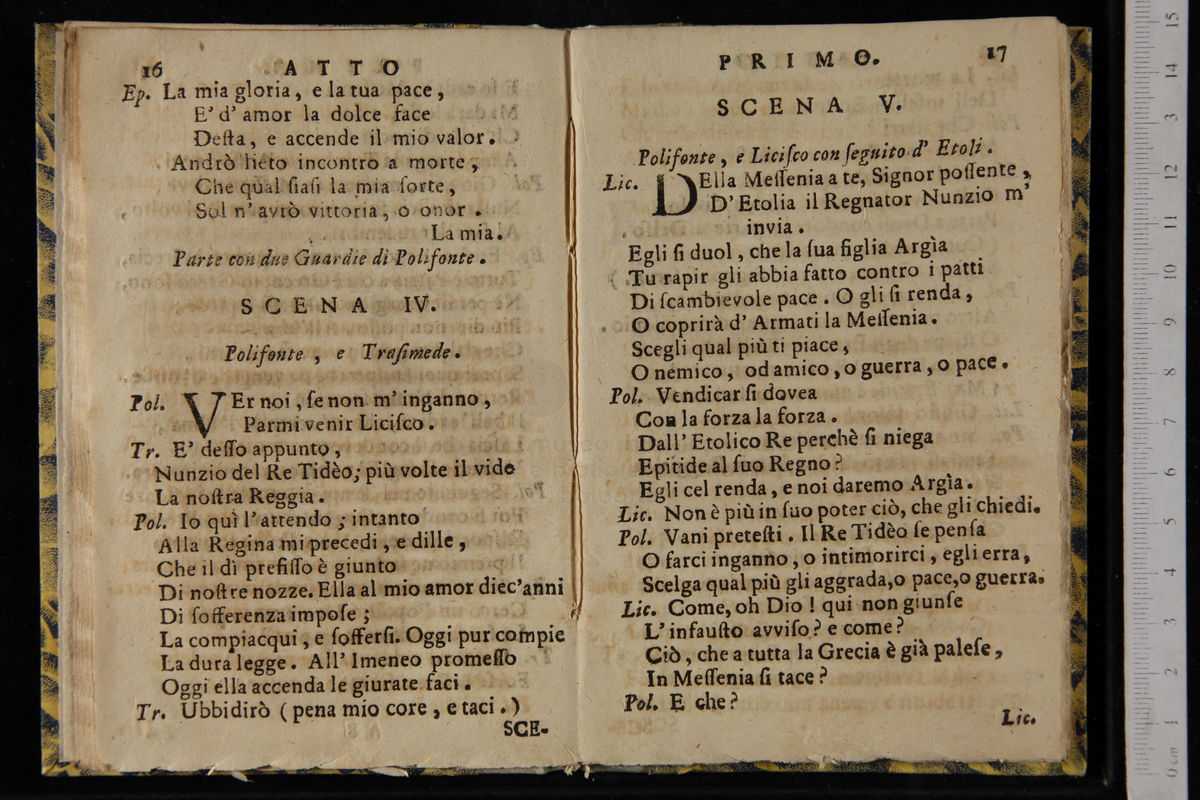 16 ATTO
Ep. La mia gloria, e la tua pace,
E' d' amor la dolce face
Deſta, e accende il mio valor.
Andrò lieto incontro a morte,
Che qual ſiaſi la mia ſorte,
Sol n' avrò vittoria, o onor.
La mia.
Parte con due Guardie di Polifonte.
SCENA IV.
Polifonte, e Traſimede.
Pol. VEr noi, ſe non m' inganno,
Parmi venir Liciſco.
Tr. E' deſſo appunto,
Nunzio del Re Tidèo; più volte il vide
La noſtra Reggia.
Pol. Io quì l' attendo; intanto
Alla Regina mi precedi, e dille,
Che il dì prefiſſo è giunto
Di noſtre nozze. Ella al mio amor diec' anni
Di ſofferenza impoſe;
La compiacqui, e ſofferſi. Oggi pur compie
La dura legge. All' Imeneo promeſſo
Oggi ella accenda le giurate faci.
Tr. Ubbidirò (pena mio core, e taci.)
SCE-
PRIMO. 17
SCENA V.
Polifonte, e Liciſco con ſeguito d' Etoli.
Lic. DElla Meſſenia a te, Signor poſſente,
D' Etolia il Regnator Nunzio m'
invia.
Egli ſi duol, che la ſua figlia Argìa
Tu rapir gli abbia fatto contro i patti
Di ſcambievole pace. O gli ſi renda,
O coprirà d' Armati la Meſſenia.
Scegli qual più ti piace,
O nemico, od amico, o guerra, o pace.
Pol. Vendicar ſi dovea
Con la forza la forza.
Dall' Etolico Re perchè ſi niega
Epitide al ſuo Regno?
Egli cel renda, e noi daremo Argìa.
Lic. Non è più in ſuo poter ciò, che gli chiedi.
Pol. Vani preteſti. Il Re Tidèo ſe penſa
O farci inganno, o intimorirci, egli erra,
Scelga qual più gli aggrada, o pace, o guerra.
Lic. Come, oh Dio! qui non giunſe
L' infauſto avviſo? e come?
Ciò, che a tutta la Grecia è già paleſe,
In Meſſenia ſi tace?
Pol. E che?
Lic.
0 cm 1 2 3 4 5 6 7 8 9 10 11 12 13 14 15